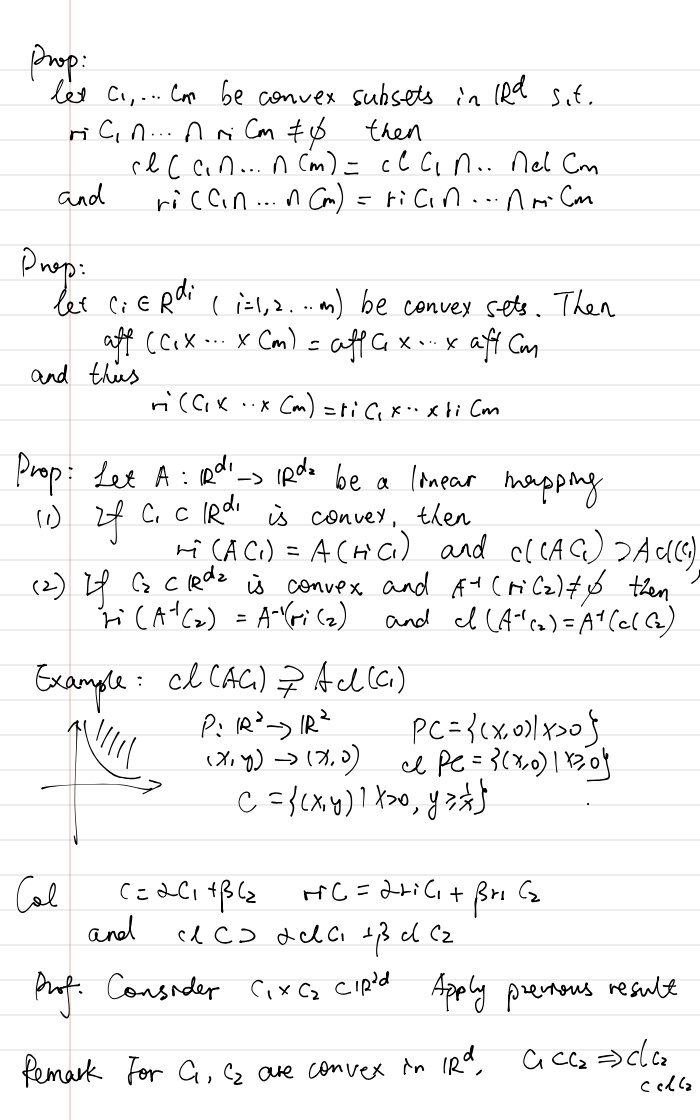 Prop:
let C₁,... Cm be convex subsets in ℝᵈ s.t.
ri C₁ ∩ ... ∩ ri Cm ≠ ∅ then
cl ( C₁ ∩ ... ∩ Cm) = cl C₁ ∩ .. ∩ cl Cm
and ri (C₁ ∩ ... ∩ Cm) = ri C₁ ∩ ... ∩ ri Cm
Prop:
let Ci ∈ ℝ^di ( i=1,2...m) be convex sets. Then
aff (C₁ x ... x Cm) = aff C₁ x ... x aff Cm
and thus
ri (C₁ x .. x Cm) = ri C₁ x .. x ri Cm
Prop: Let A : ℝ^d₁ -> ℝ^d₂ be a linear mapping
(1) If C₁ ⊂ ℝ^d₁ is convex, then
ri (A C₁) = A (ri C₁) and cl (A C₁) ⊃ A cl (C₁),
(2) If C₂ ⊂ ℝ^d₂ is convex and A⁻¹ (ri C₂) ≠ ∅ then
ri (A⁻¹ C₂) = A⁻¹(ri C₂) and cl (A⁻¹ C₂) = A⁻¹ (cl C₂)
Example: cl (AC₁) ⊋ A cl (C₁)
P: ℝ² -> ℝ² PC = {(x,0) | x>0}
(x,y) -> (x,0) cl PC = {(x,0) | x≥0}
C = {(x,y) | x>0, y ≥ 1/x}
Col C = αC₁ + βC₂ ri C = α ri C₁ + β ri C₂
and cl C ⊃ α cl C₁ + β cl C₂
Prof. Consider C₁ x C₂ ⊂ ℝ²ᵈ Apply previous result
Remark For C₁, C₂ are convex in ℝᵈ, C₁ ⊂ C₂ => cl C₂
⊂ cl C₂